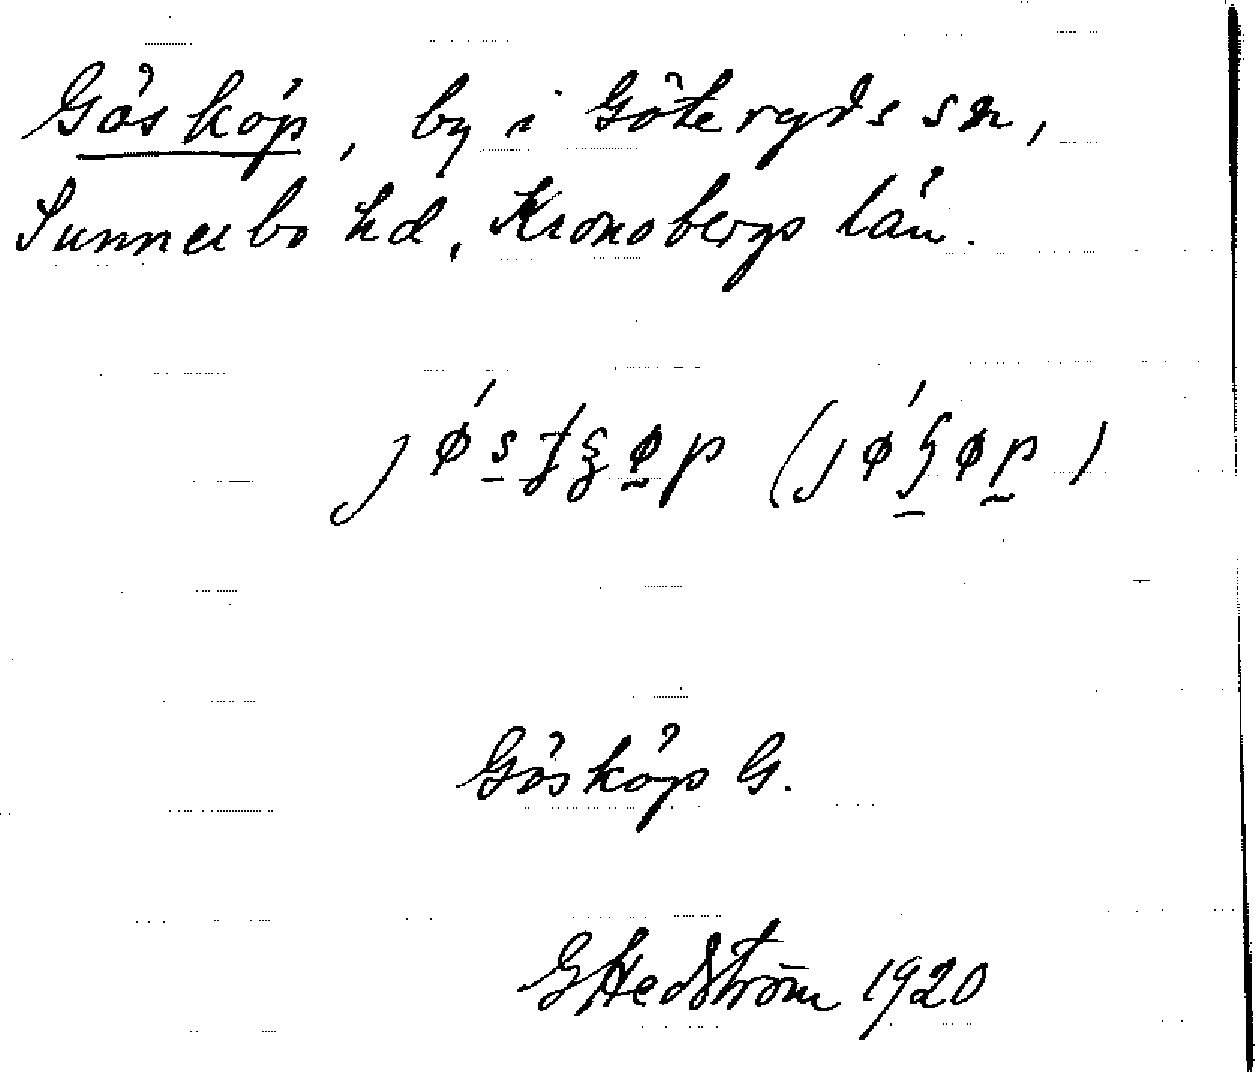 Gösköp, by i Göteryds sn,
Sunnerbo hd, Kronobergs län.
Gösköp G.
GHedström 1920